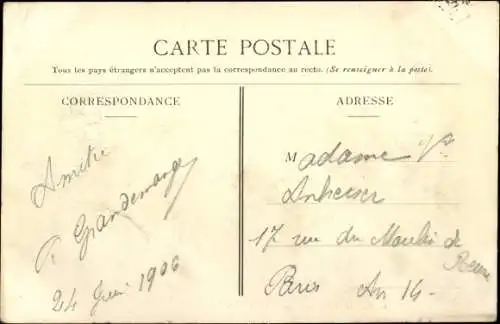 CARTE POSTALE
Tous les pays étrangers n'acceptent pas la correspondance au recto. (Se renseigner à la poste).
CORRESPONDANCE
Amitié
24 1906
ADRESSE
Madame
17 rue du Moulin de
Beurre
Paris